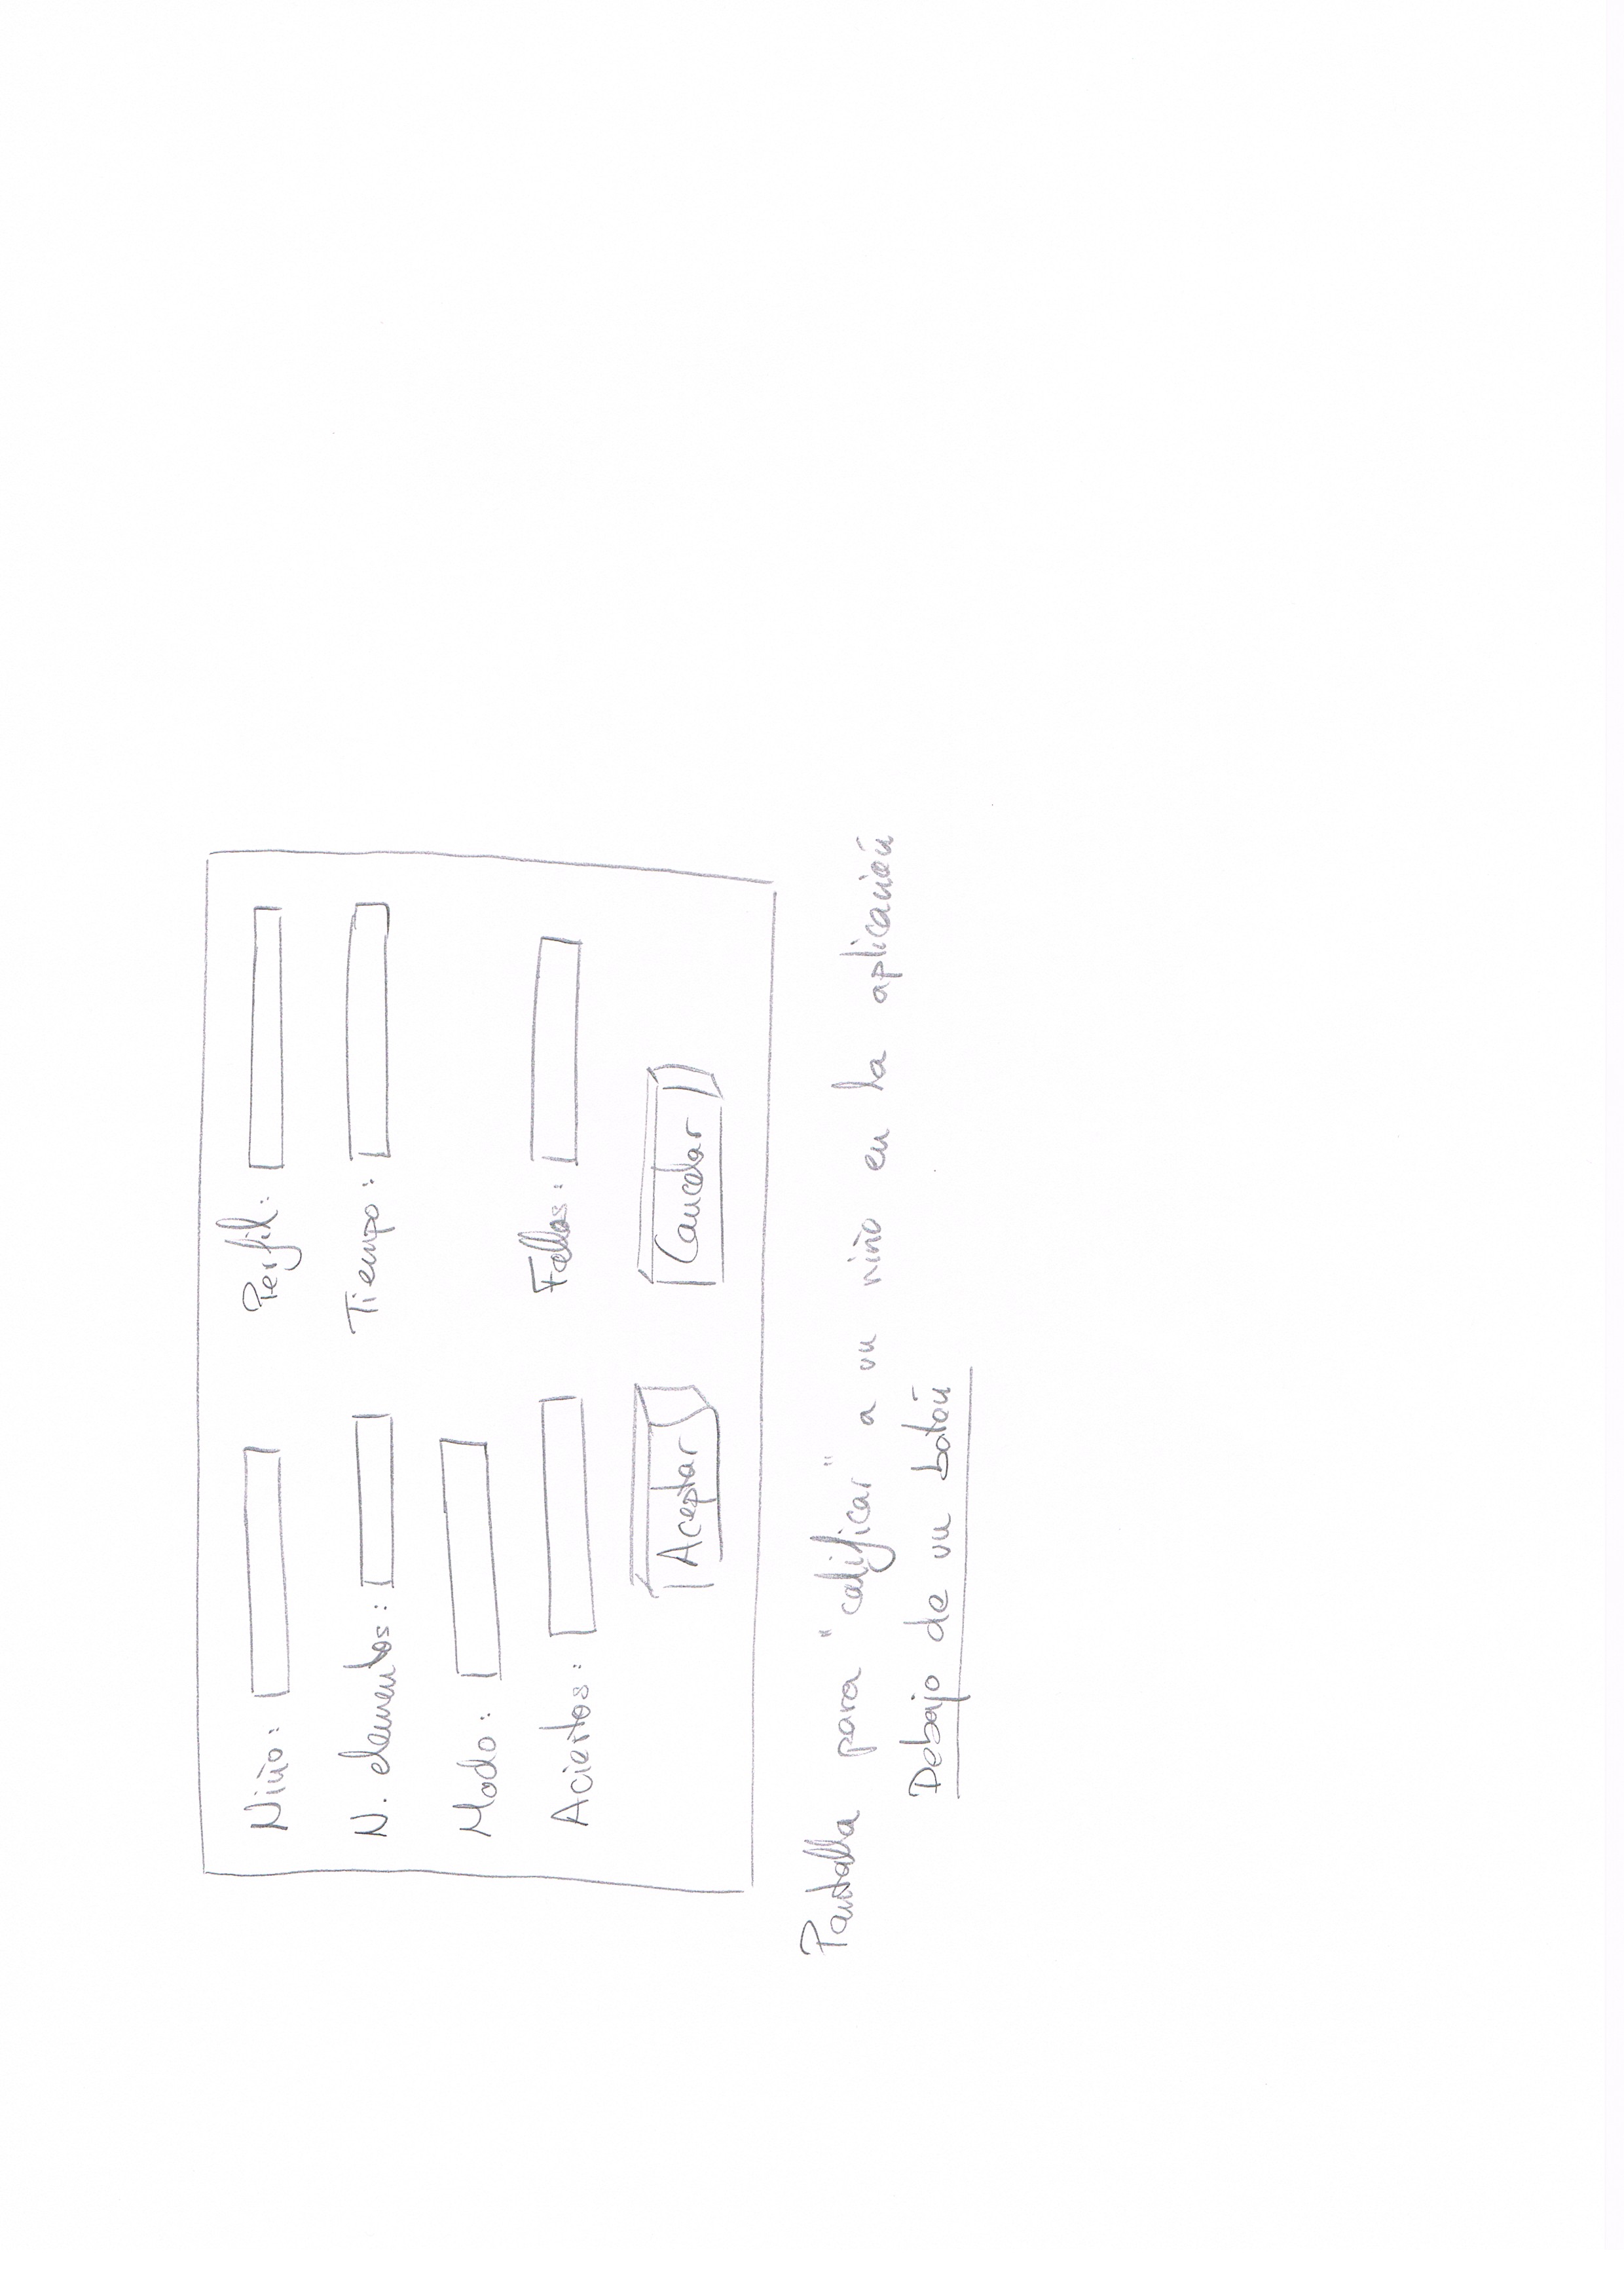 Niño: Perfil:
N. elementos: Tiempo:
Modo:
Aciertos: Fallos:
Aceptar Cancelar
Pantalla para "calificar" a un niño en la aplicación
Debajo de un botón